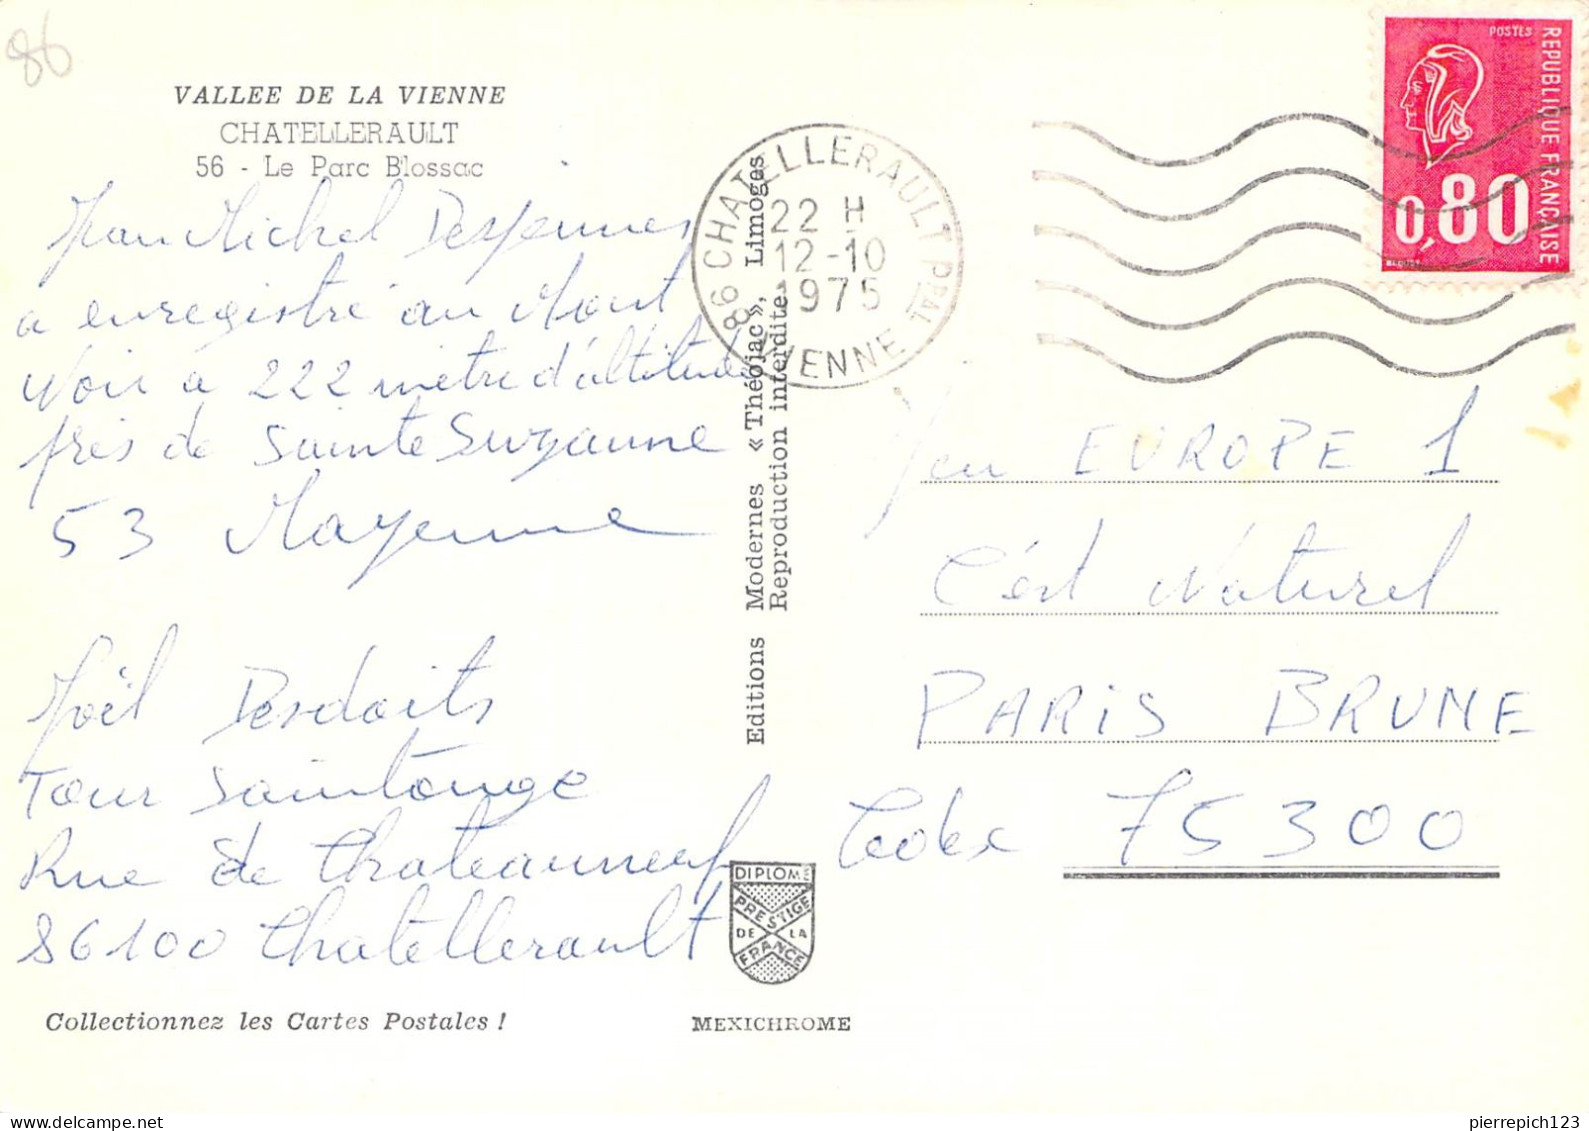 86
VALLEE DE LA VIENNE
CHATELLERAULT
56 - Le Parc Blossac
Jean Michel Desjeunes
a enregistré au Mont
Noir a 222 mètre d'altitude
près de Sainte Suzanne
53 Mayenne
Joël Desdoits
Tour Saintonge
Rue de Chateauneuf
86100 Chatellerault
Collectionnez les Cartes Postales !
Editions Modernes « Théojac », Limoges
Reproduction interdite
DIPLOME
PRESTIGE
DE LA
FRANCE
MEXICHROME
86 CHATELLERAULT PPAL
22 H
12-10
1975
VIENNE
POSTES
REPUBLIQUE FRANÇAISE
0,80
BEQUET
Jeu EUROPE 1
C'est Naturel
PARIS BRUNE
Code 75300
pierrepich123